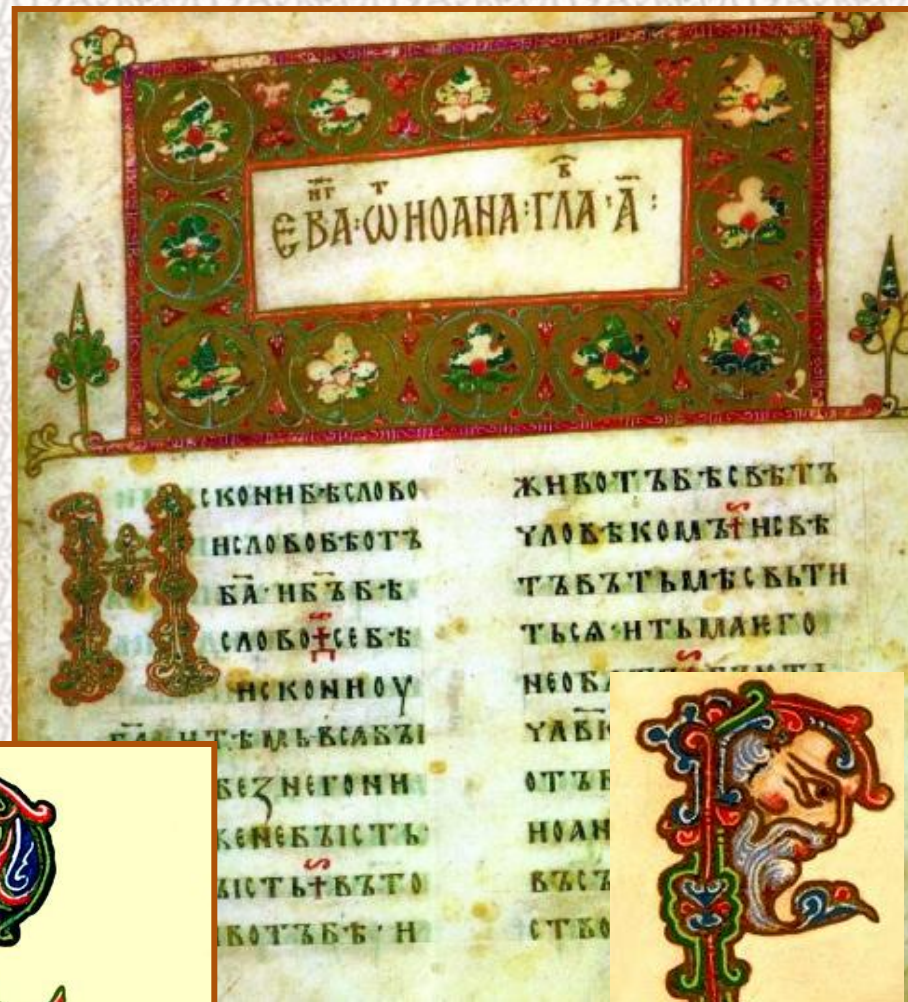 ЕВАНГ · ѾТ ИОАНА · ГЛАВ · А҃ :
ИСКОНИ БѢ СЛОВО
И СЛОВО БѢ ОТЪ
Б҃А · И Б҃Ъ БѢ
СЛОВО † СЕ БѢ
ИСКОНИ ОУ
Б҃А · И ТѢМЬ ВСА БЪІ
БЕЗ НЕГО НИ
ЖЕ НЕ БЪІСТЬ
ЪІСТЬ † ВЪ ТО
ВОТЪ БѢ · И
ЖИВОТЪ БѢ СВѢТЪ
ЧЛОВѢКОМЪ † И СВѢ
ТЪ ВЪ ТЬМѢ СВЬТИ
ТЬСѦ · И ТЬМА ЕГО
НЕ ОБ
ОТЪ
ИОАН
ВЪС
СТВО